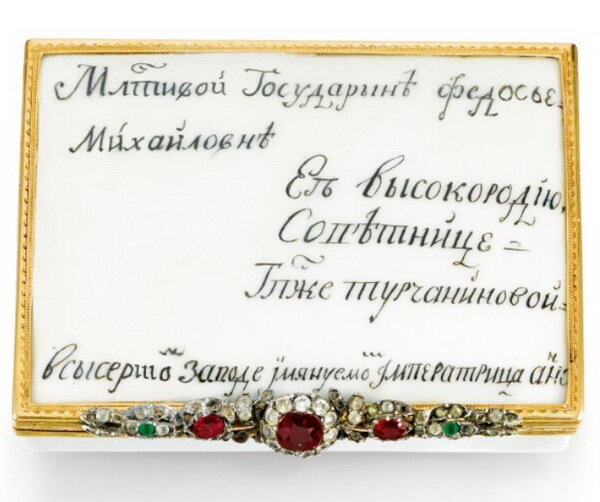 Млтивой Государинѣ федосье-
Михайловнѣ
Еѣ высокородію,
Совѣтнице =
Гпже турчаниновой-
всысертѡ заводе імянуемо імператрица